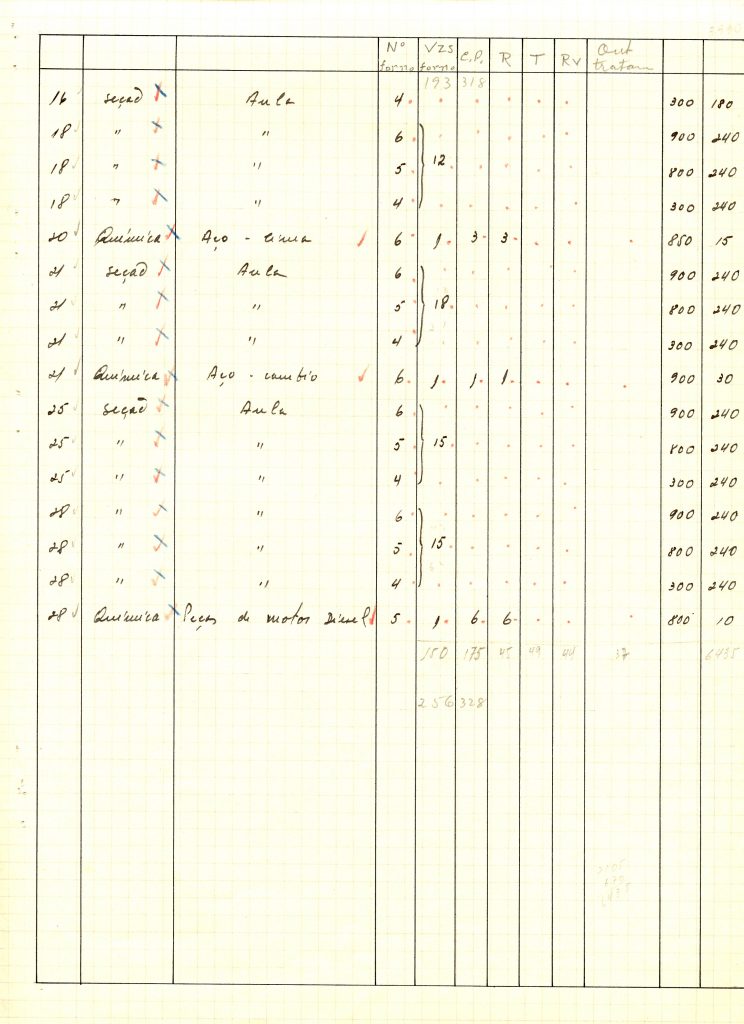 Nº Vzs C.P. R T Rv Out
forno forno tratam
193 318
16 seção Aula 4 300 180
18 " " 6 900 240
18 " " 5 12 800 240
18 " " 4 300 240
20 Química Aço - 6 1 3 3 850 15
21 seção Aula 6 900 240
21 " " 5 18 800 240
21 " " 4 300 240
21 Química Aço - cambio 6 1 1 1 900 30
25 seção Aula 6 900 240
25 " " 5 15 800 240
25 " " 4 300 240
28 " " 6 900 240
28 " " 5 15 800 240
28 " " 4 300 240
28 Química Peças de motor Diesel 5 1 6 6 800 10
150 175 45 49 44 37 6435
256 328